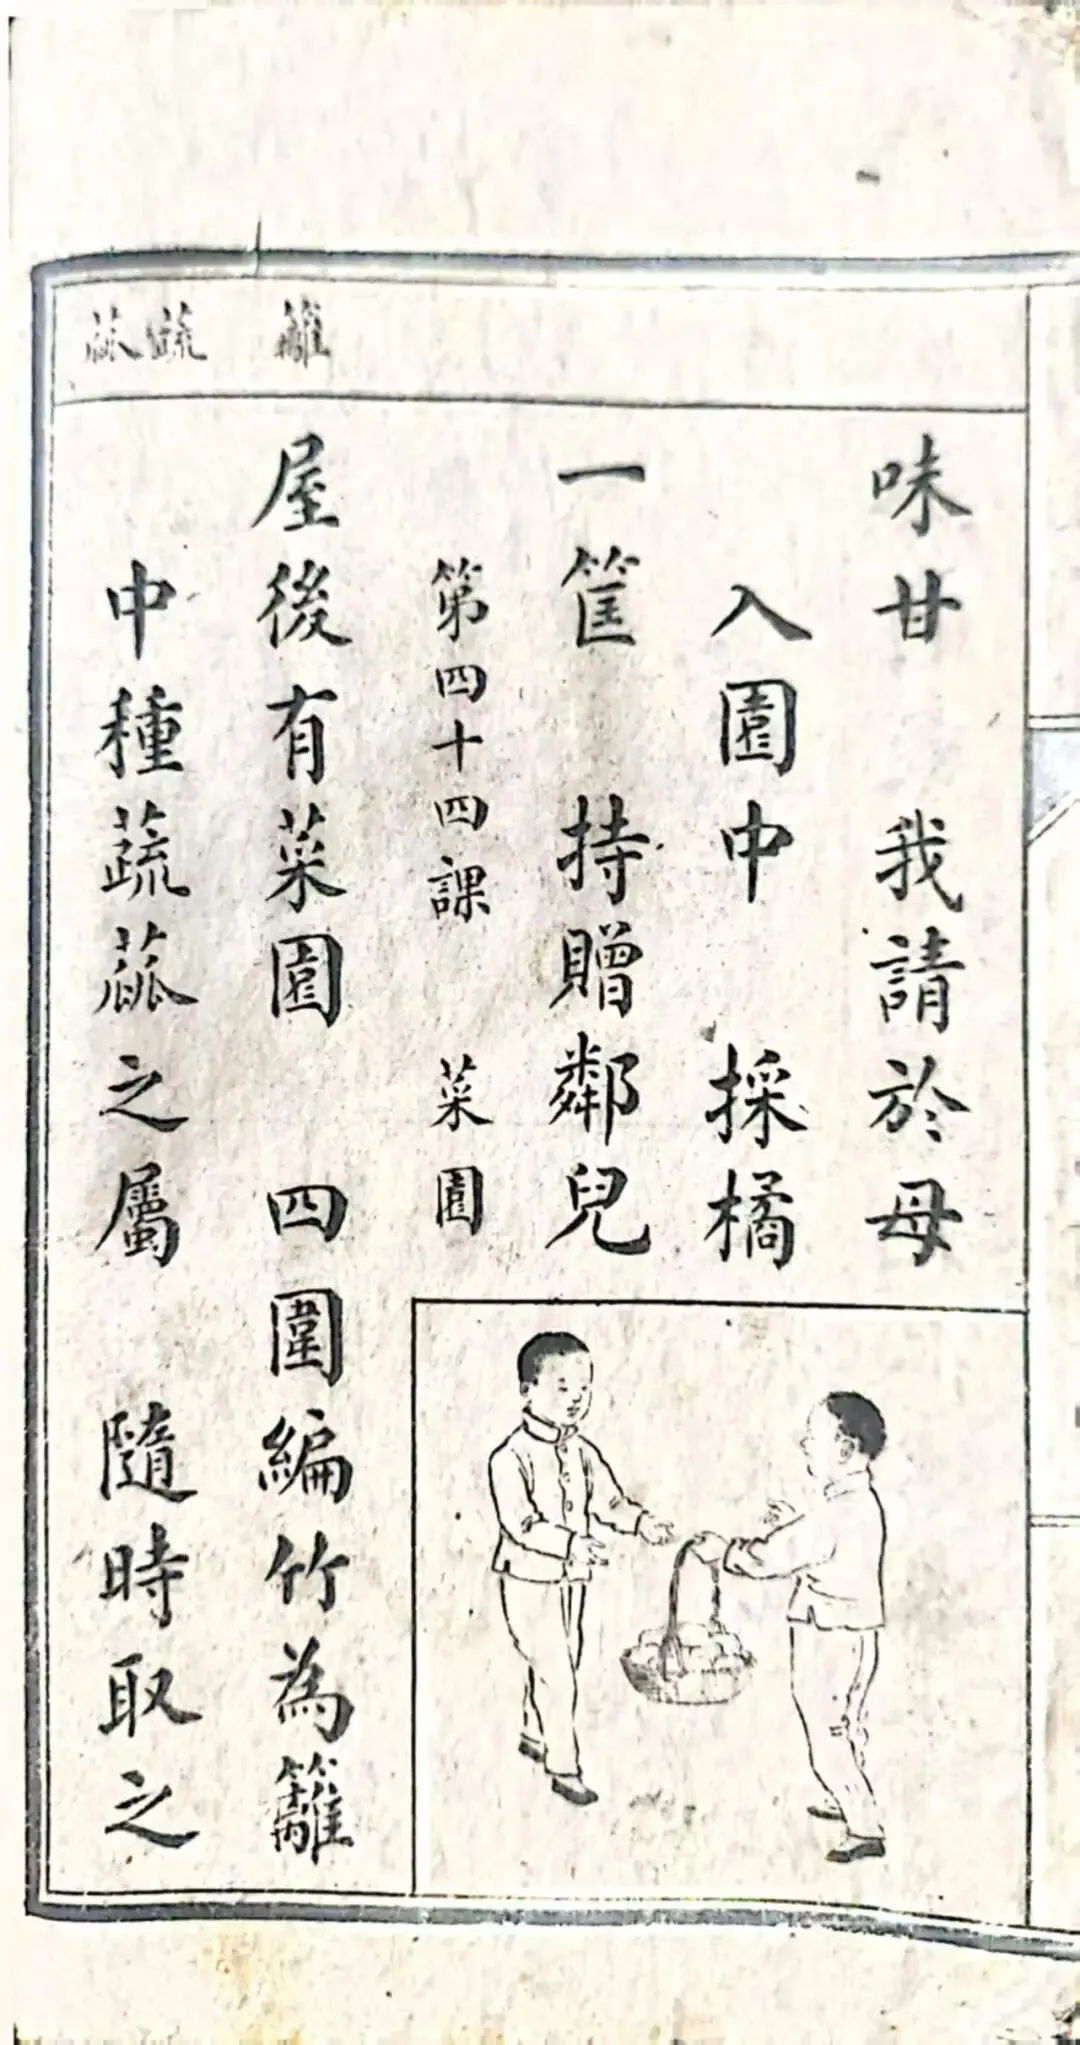 味甘 我請於母
入園中 採橘
一筐 持贈鄰兒
第四十四課 菜園
籬
屋後有菜園 四圍編竹為籬
蔬蓏
中種蔬蓏之屬 隨時取之